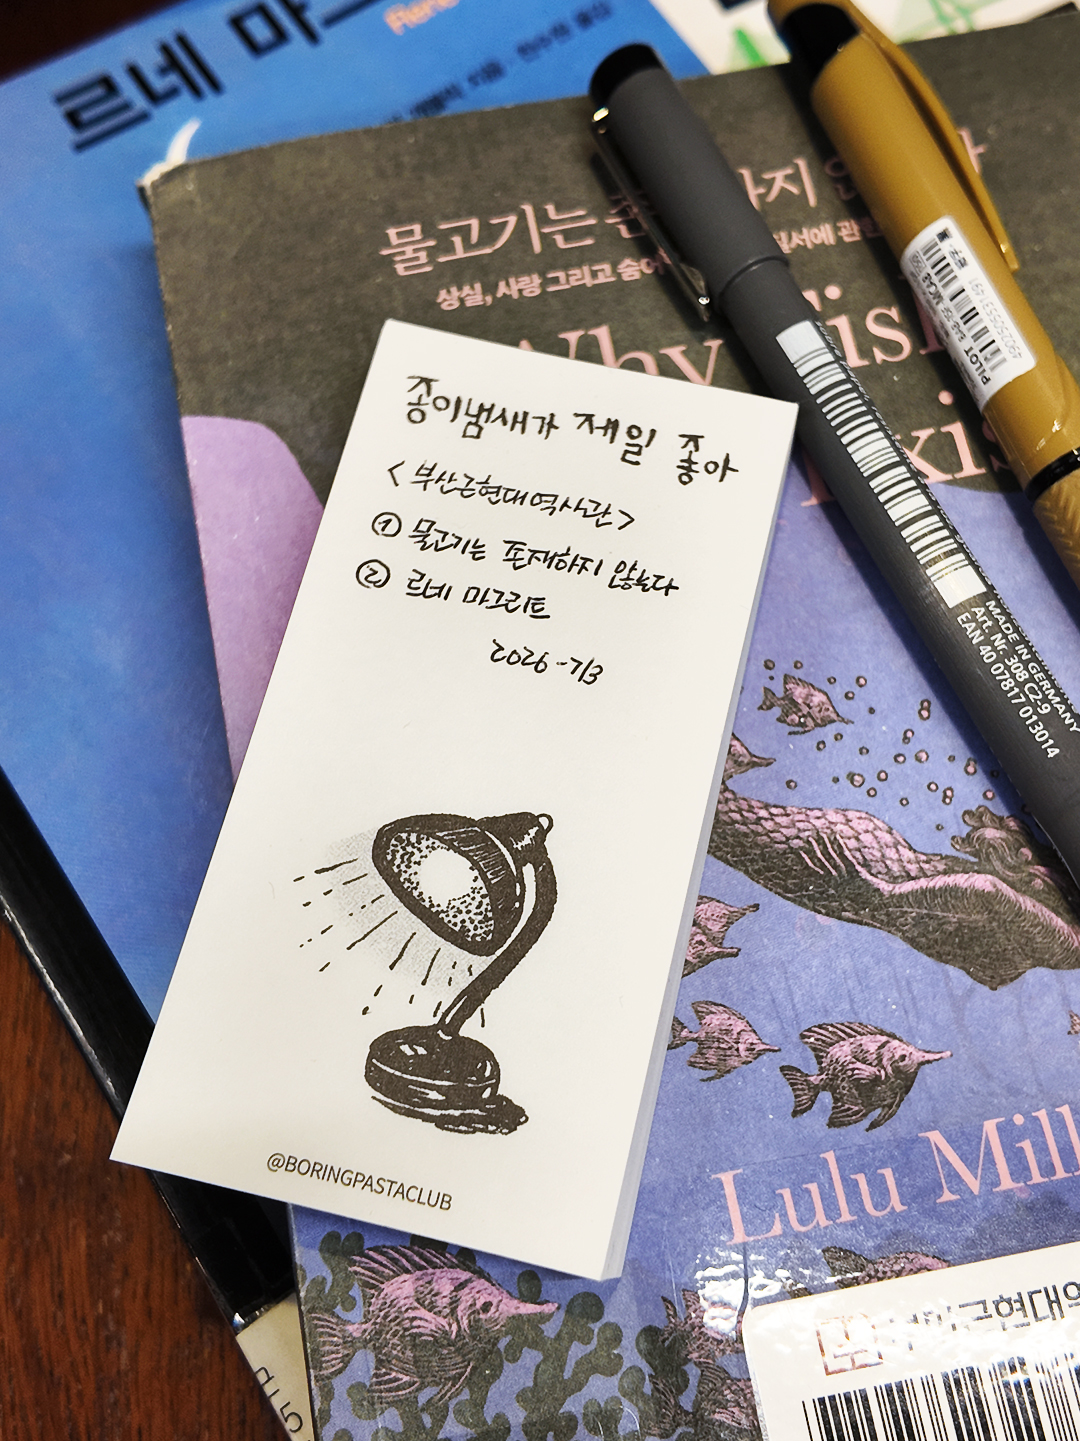 르네 마
물고기는
상실, 사랑 그리고 숨어
Why Fis
xis
Lulu Mill
종이냄새가 제일 좋아
<부산근현대역사관>
① 물고기는 존재하지 않는다
② 르네 마그리트
2026-7/3
@BORINGPASTACLUB
MADE IN GERMANY
Art. Nr. 308 C2-9
EAN 40 07817 013014
PILOT
근현대역